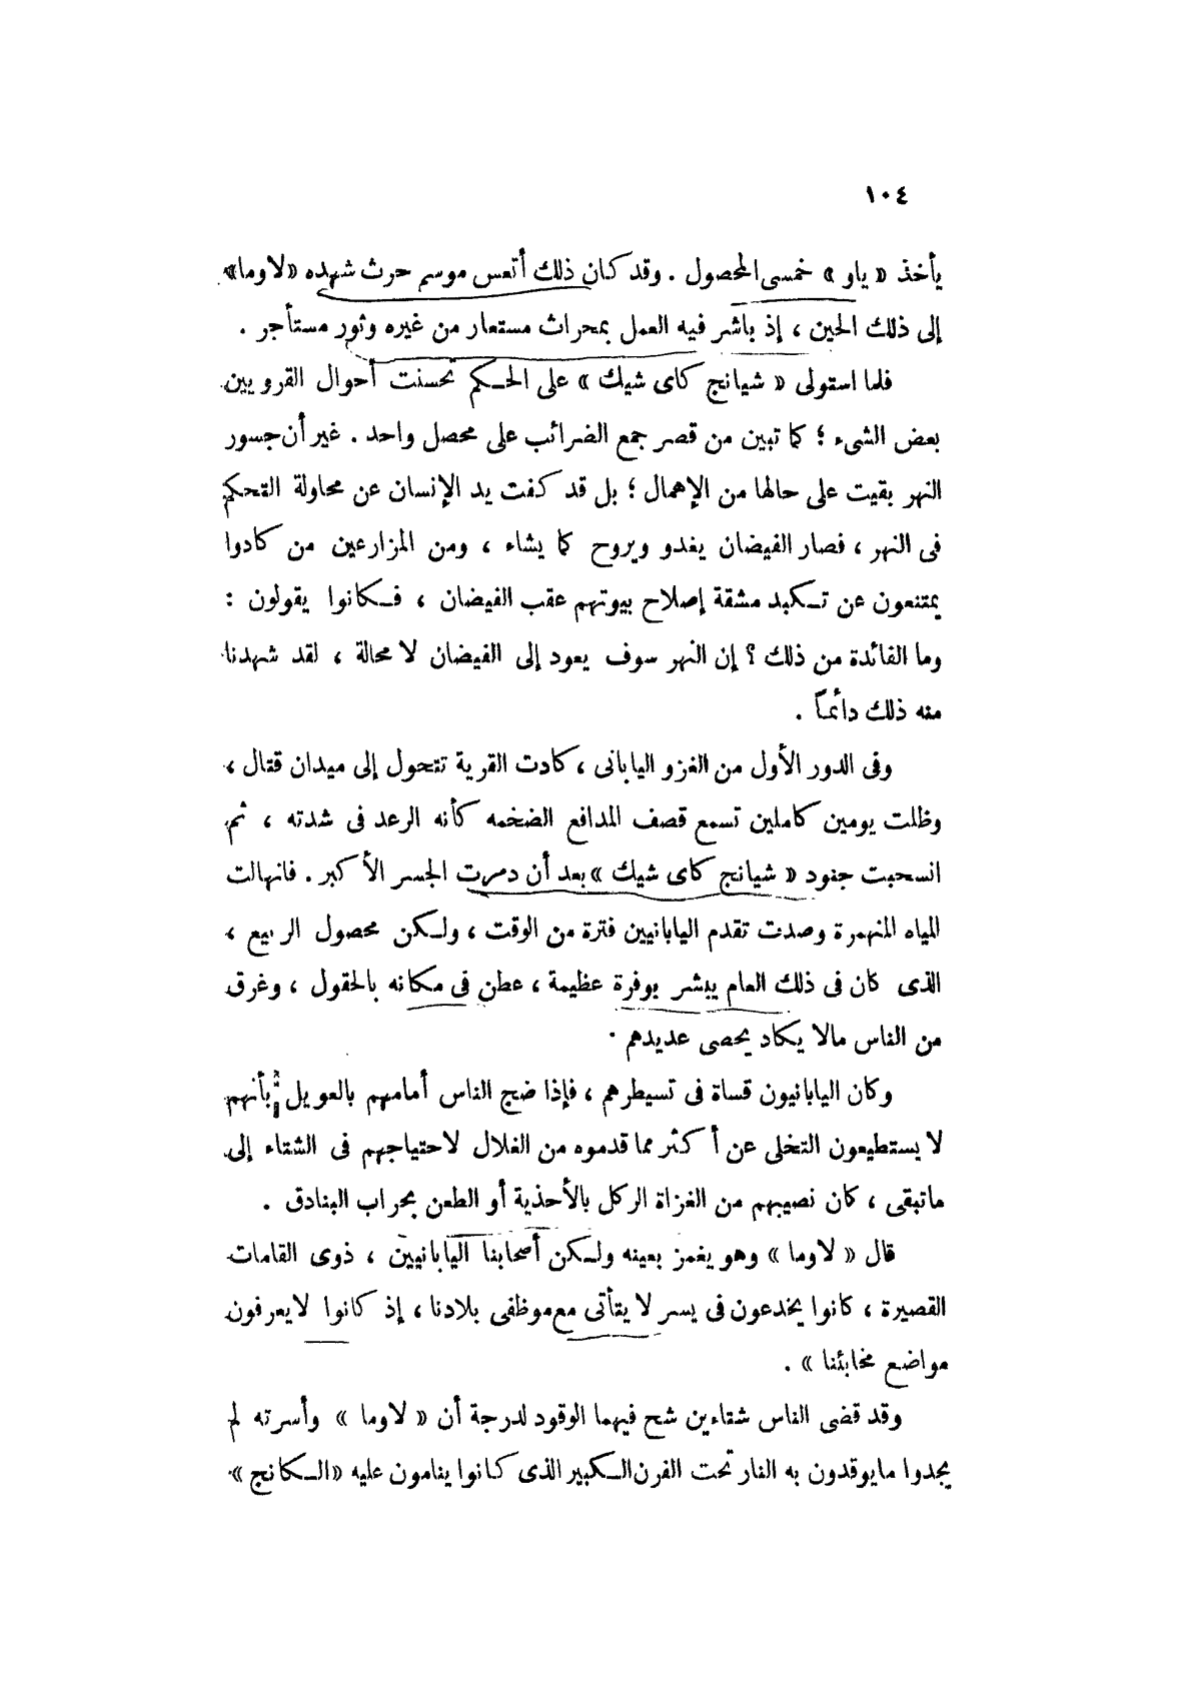 ١٠٤
يأخذ « ياو » خمسى المحصول . وقد كان ذلك أتعس موسم حرث شهده «لاوما»
إلى ذلك الحين ، إذ باشر فيه العمل بمحراث مستعار من غيره وثور مستأجر .
فلما استولى « شيانج كاى شيك » على الحكم تحسنت أحوال القرويين
بعض الشىء ؛ كما تبين من قصر جمع الضرائب على محصل واحد . غير أن جسور
النهر بقيت على حالها من الإهمال ؛ بل قد كفت يد الإنسان عن محاولة التحكم
فى النهر ، فصار الفيضان يغدو ويروح كما يشاء ، ومن المزارعين من كادوا
يمتنعون عن تكبد مشقة إصلاح بيوتهم عقب الفيضان ، فكانوا يقولون :
وما الفائدة من ذلك ؟ إن النهر سوف يعود إلى الفيضان لا محالة ، لقد شهدنا
منه ذلك دائماً .
وفى الدور الأول من الغزو اليابانى ، كادت القرية تتحول إلى ميدان قتال ،
وظلت يومين كاملين تسمع قصف المدافع الضخمه كأنه الرعد فى شدته ، ثم
انسحبت جنود « شيانج كاى شيك » بعد أن دمرت الجسر الأكبر . فانهالت
المياه المنهمرة وصدت تقدم اليابانيين فترة من الوقت ، ولكن محصول الربيع ،
الذى كان فى ذلك العام يبشر بوفرة عظيمة ، عطن فى مكانه بالحقول ، وغرق
من الناس مالا يكاد يحصى عديدهم .
وكان اليابانيون قساة فى تسيطرهم ، فإذا ضج الناس أمامهم بالعويل بأنهم
لا يستطيعون التخلى عن أكثر مما قدموه من الغلال لاحتياجهم فى الشتاء إلى
ماتبقى ، كان نصيبهم من الغزاة الركل بالأحذية أو الطعن بحراب البنادق .
قال « لاوما » وهو يغمز بعينه ولكن أصحابنا اليابانيين ، ذوى القامات
القصيرة ، كانوا يخدعون فى يسر لا يتأتى مع موظفى بلادنا ، إذ كانوا لايعرفون
مواضع مخابئنا » .
وقد قضى الناس شتاءين شح فيهما الوقود لدرجة أن « لاوما » وأسرته لم
يجدوا مايوقدون به النار تحت الفرن الكبير الذى كانوا ينامون عليه «الكانج»